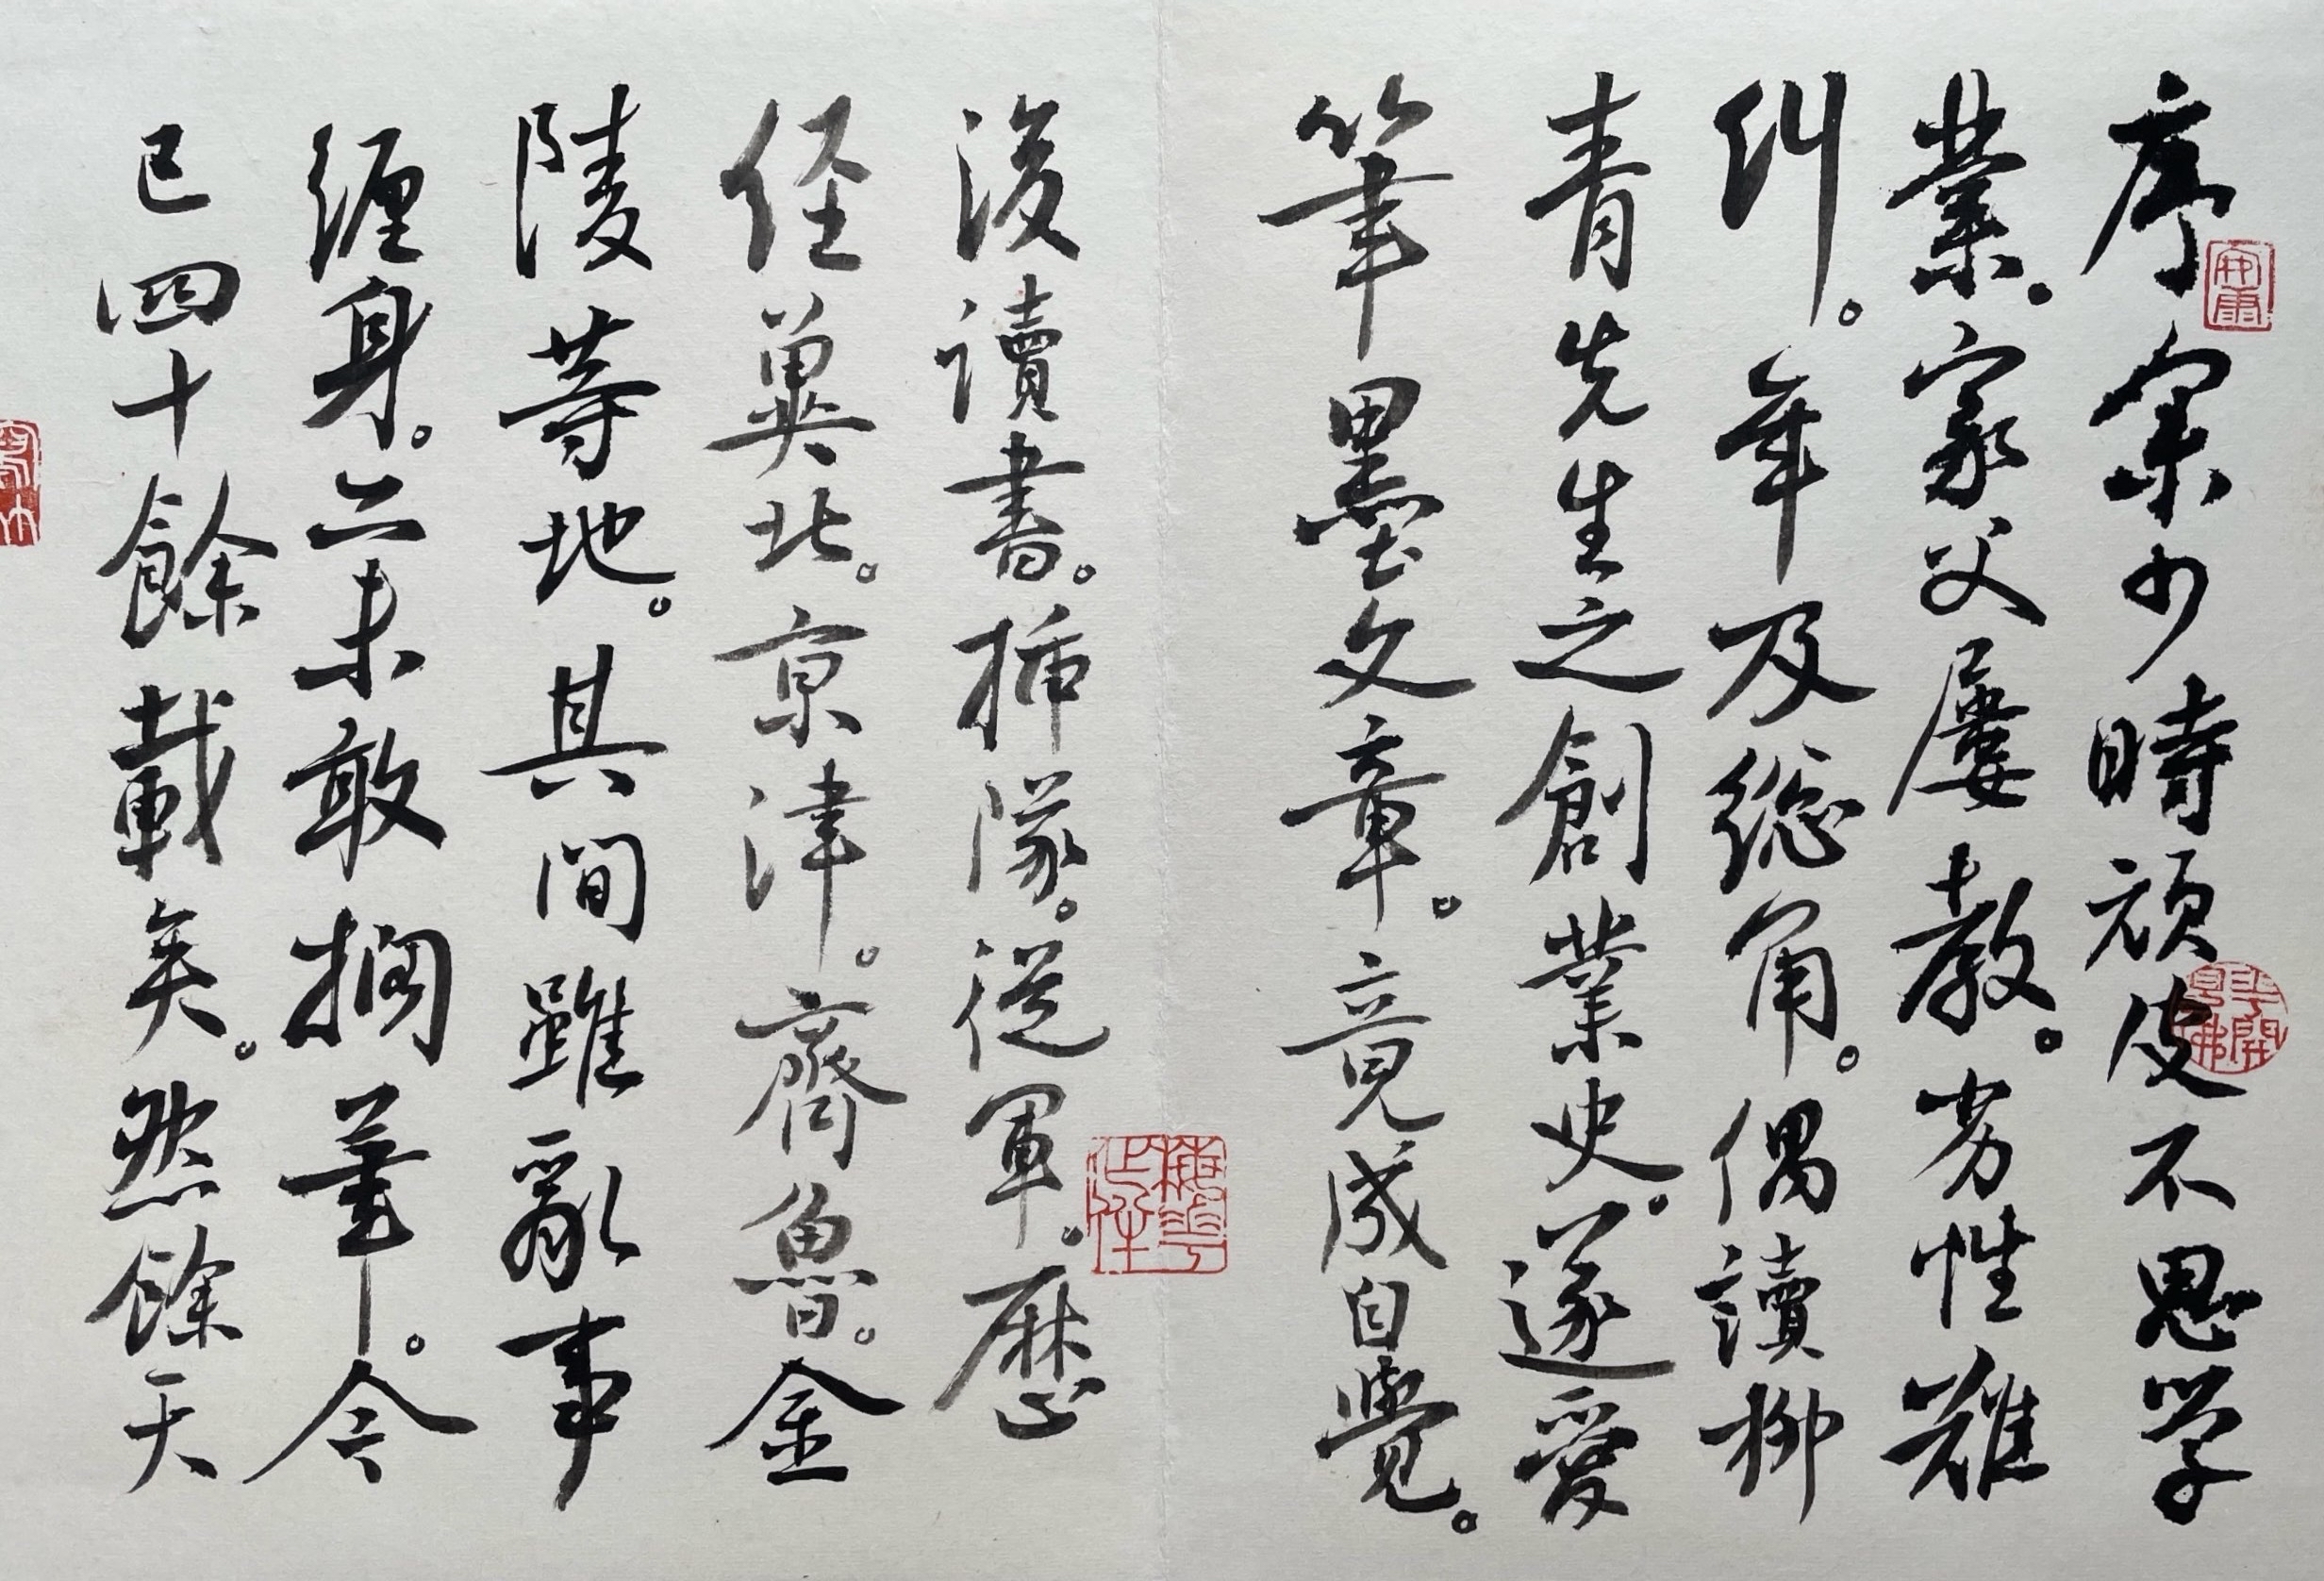 序 余少時頑皮不思学
業。家父屢教。劣性難
糾。年及総角。偶讀柳
青先生之創業史。遂愛
筆墨文章。竟成自覺。
後讀書。插隊。從軍。歷
经冀北。京津。齊魯。金
陵等地。其間雖亂事
缠身。亦未敢搁筆。今
已四十餘載矣。然餘天
安康